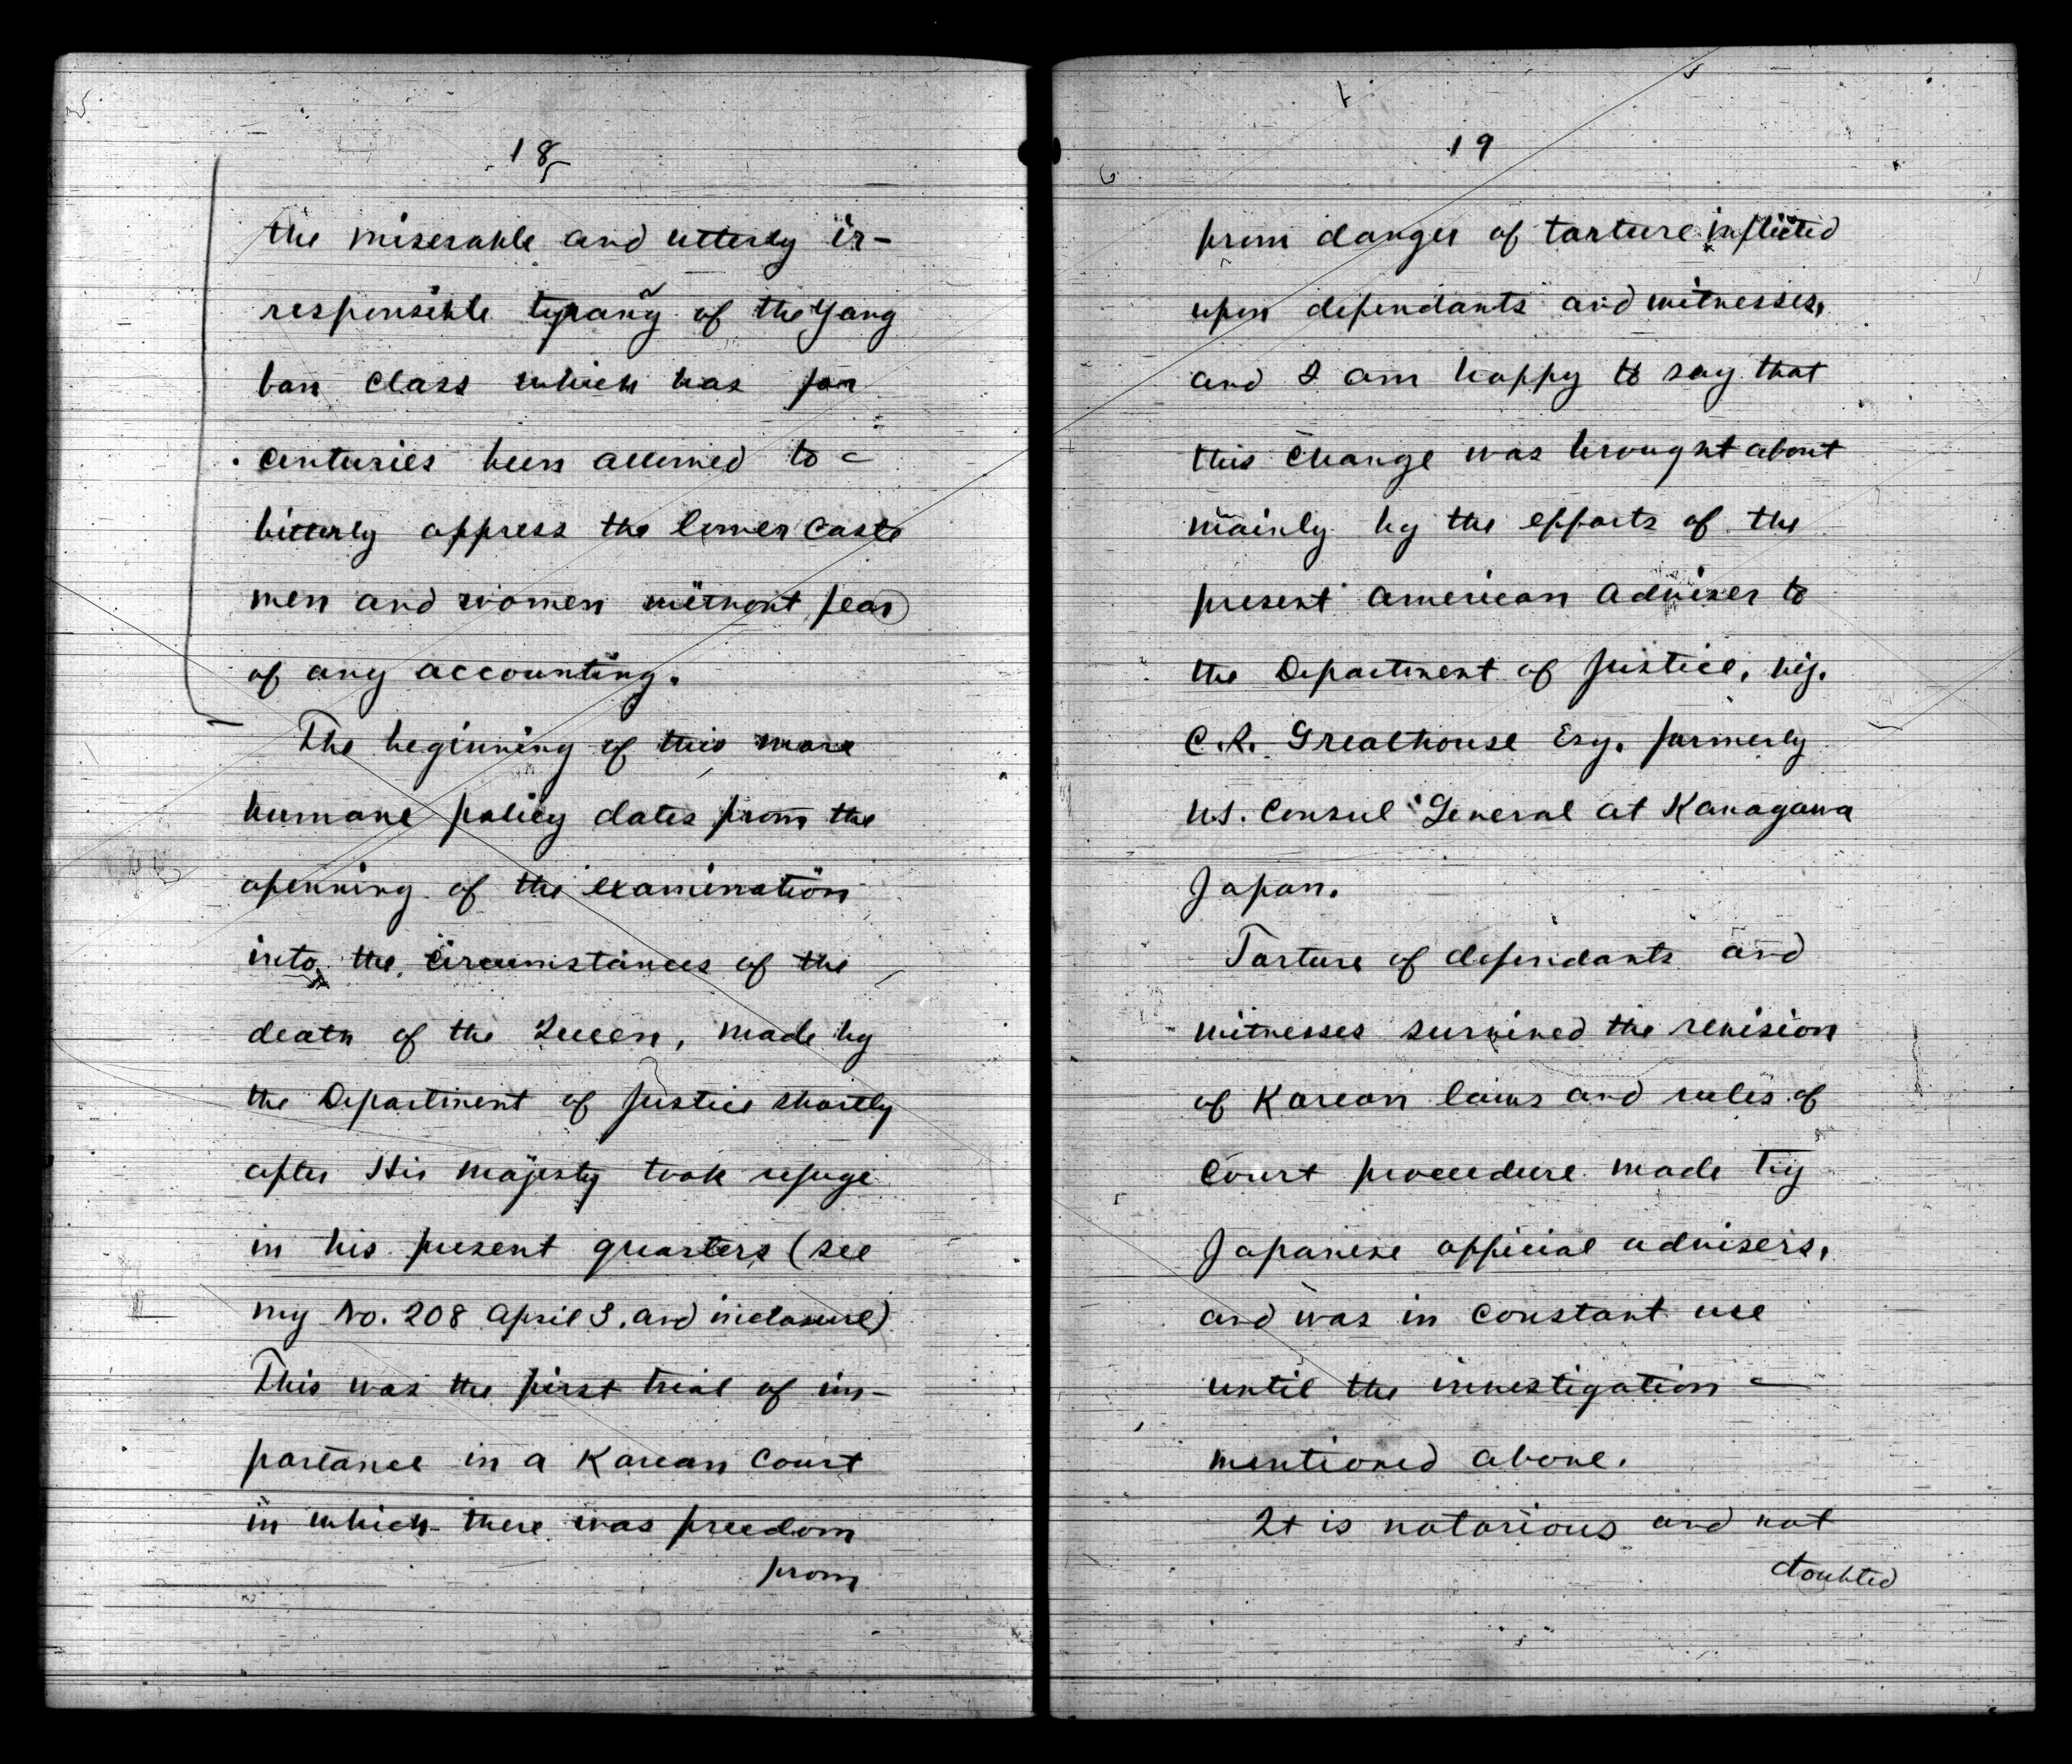 18
the miserable and utterly ir-
responsible tyrany of the Yang
ban class which has for
centuries been allowed to -
bitterly oppress the lower caste
men and women without fear
of any accounting.
The beginning of this more
humane policy dates from the
openning of the examination
into the circumstances of the
death of the Queen, made by
the Department of Justice shortly
after His Majesty took refuge
in his present quarters (see
my No. 208 April 3. and inclosure)
This was the first trial of im-
portance in a Korean Court
in which there was freedom
from
19
from danger of torture inflicted
upon defendants and witnesses,
and I am happy to say that
this change was brought about
mainly by the efforts of the
present American adviser to
the Department of Justice, by.
C.R. Greathouse Esq. formerly
U.S. Consul General at Kanagawa
Japan.
Torture of defendants and
witnesses survived the revision
of Korean laws and rules of
Court procedure made by
Japanese official advisers,
and was in constant use
until the investigation -
mentioned above.
It is notorious and not
doubted